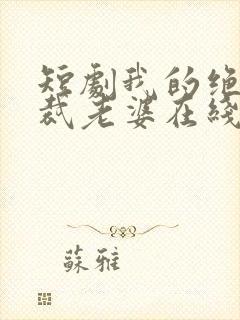 短劇我的绝
裁老婆在綫
蘇雅